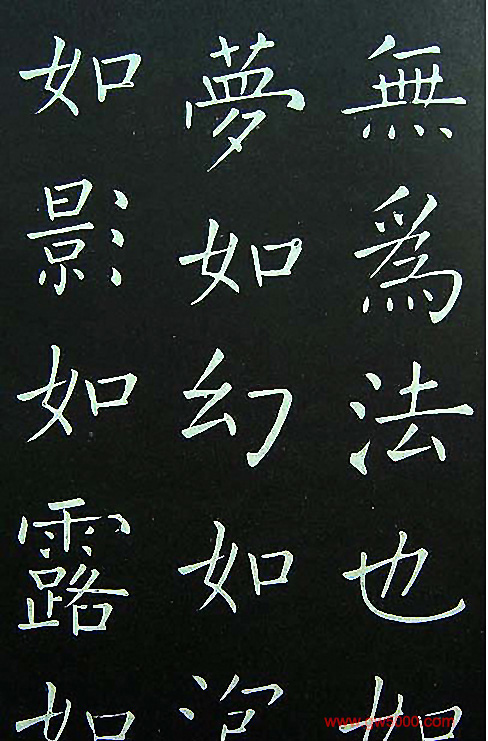 無爲法也如
夢如幻如泡
如影如露如
www.qw9000.com